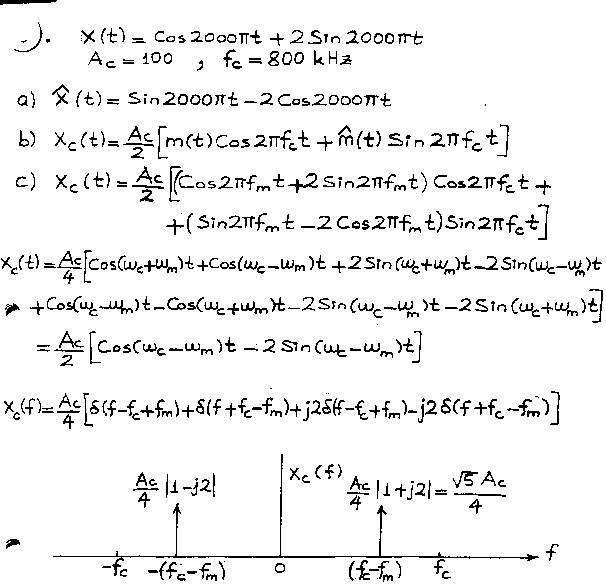 –). x(t) = Cos 2000πt + 2 Sin 2000πt
Ac = 100 , fc = 800 kHz
a) x̂(t) = Sin 2000πt – 2 Cos 2000πt
b) Xc(t) = Ac/2 [m(t) Cos 2πfct + m̂(t) Sin 2πfct]
c) Xc(t) = Ac/2 [(Cos 2πfmt + 2 Sin 2πfmt) Cos 2πfct +
+ (Sin 2πfmt – 2 Cos 2πfmt) Sin 2πfct]
Xc(t) = Ac/4 [Cos(ωc+ωm)t + Cos(ωc–ωm)t + 2 Sin(ωc+ωm)t – 2 Sin(ωc–ωm)t
+ Cos(ωc–ωm)t – Cos(ωc+ωm)t – 2 Sin(ωc–ωm)t – 2 Sin(ωc+ωm)t]
= Ac/2 [Cos(ωc–ωm)t – 2 Sin(ωc–ωm)t]
Xc(f) = Ac/4 [δ(f–fc+fm) + δ(f+fc–fm) + j2δ(f–fc+fm) – j2δ(f+fc–fm)]
Ac/4 |1–j2| Xc(f) Ac/4 |1+j2| = √5 Ac/4
–fc –(fc–fm) 0 (fc–fm) fc f